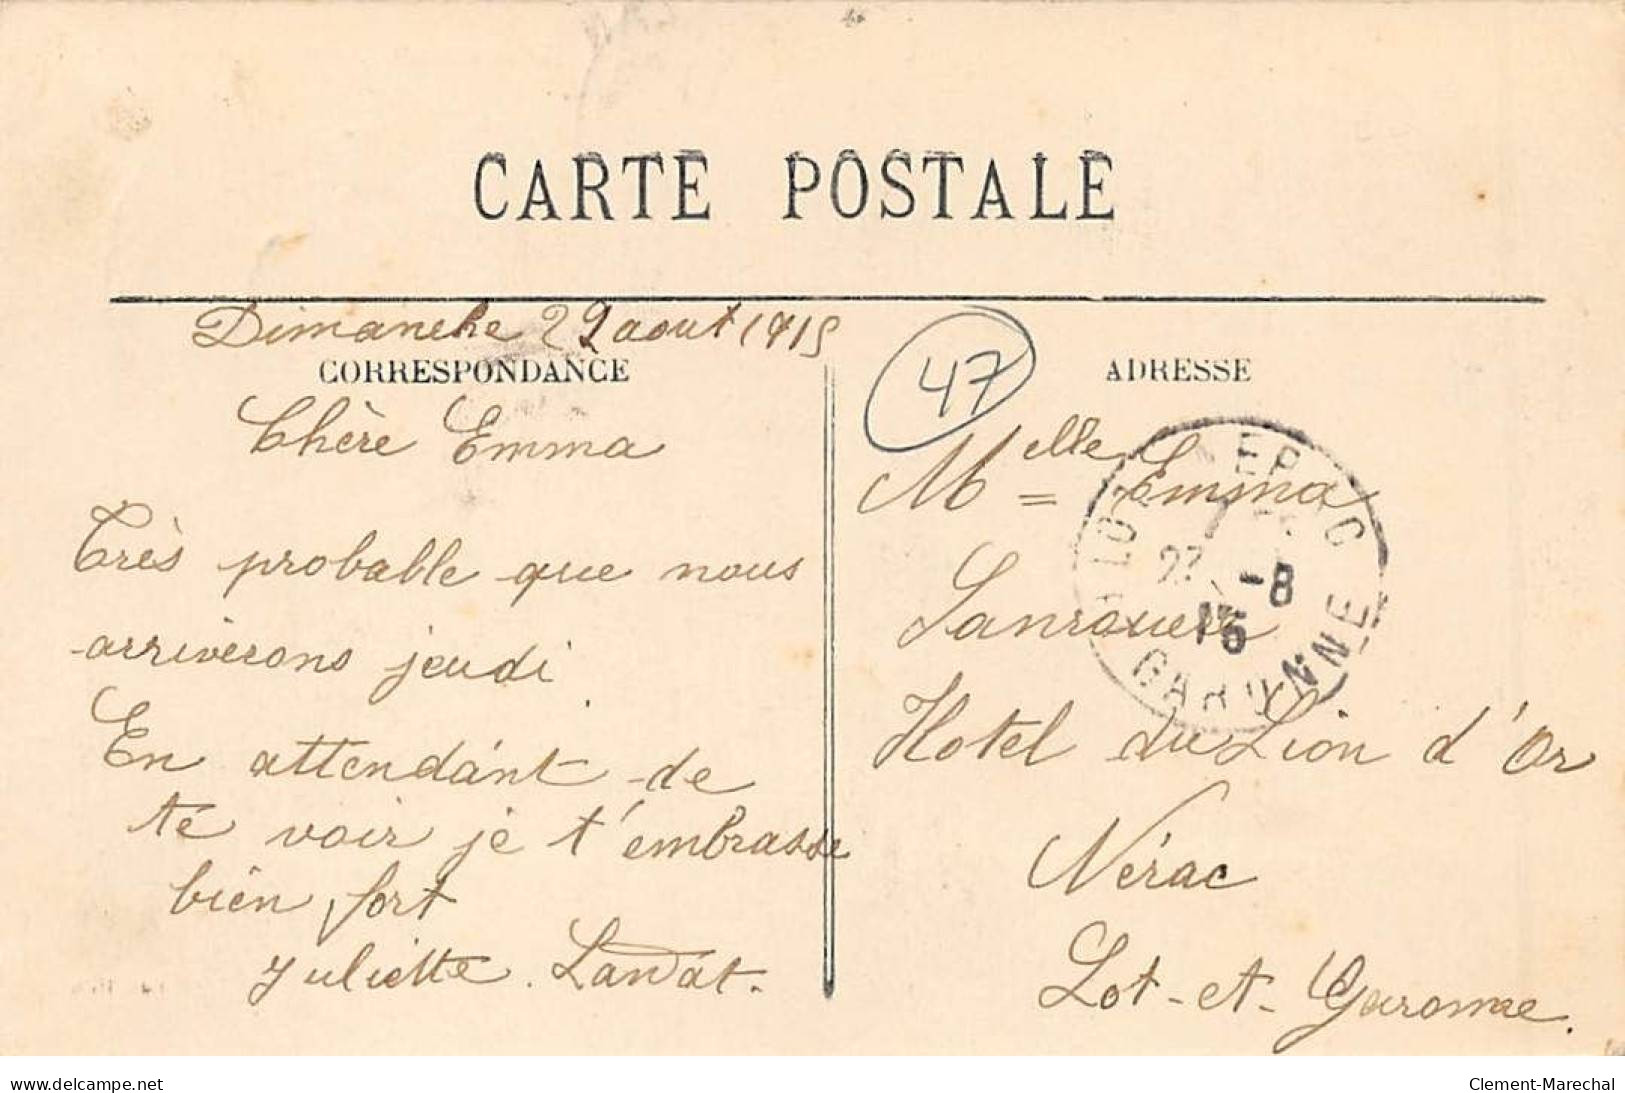 CARTE POSTALE
Dimanche 22 aout 1915
CORRESPONDANCE
Chère Emma
Très probable que nous
arriverons jeudi
En attendant de
te voir je t'embrasse
bien fort
Juliette Landat.
47
ADRESSE
Melle Emma
Hotel du Lion d'Or
Nérac
Lot-et-Garonne.
-8
15
GARONNE
www.delcampe.net
Clement-Marechal